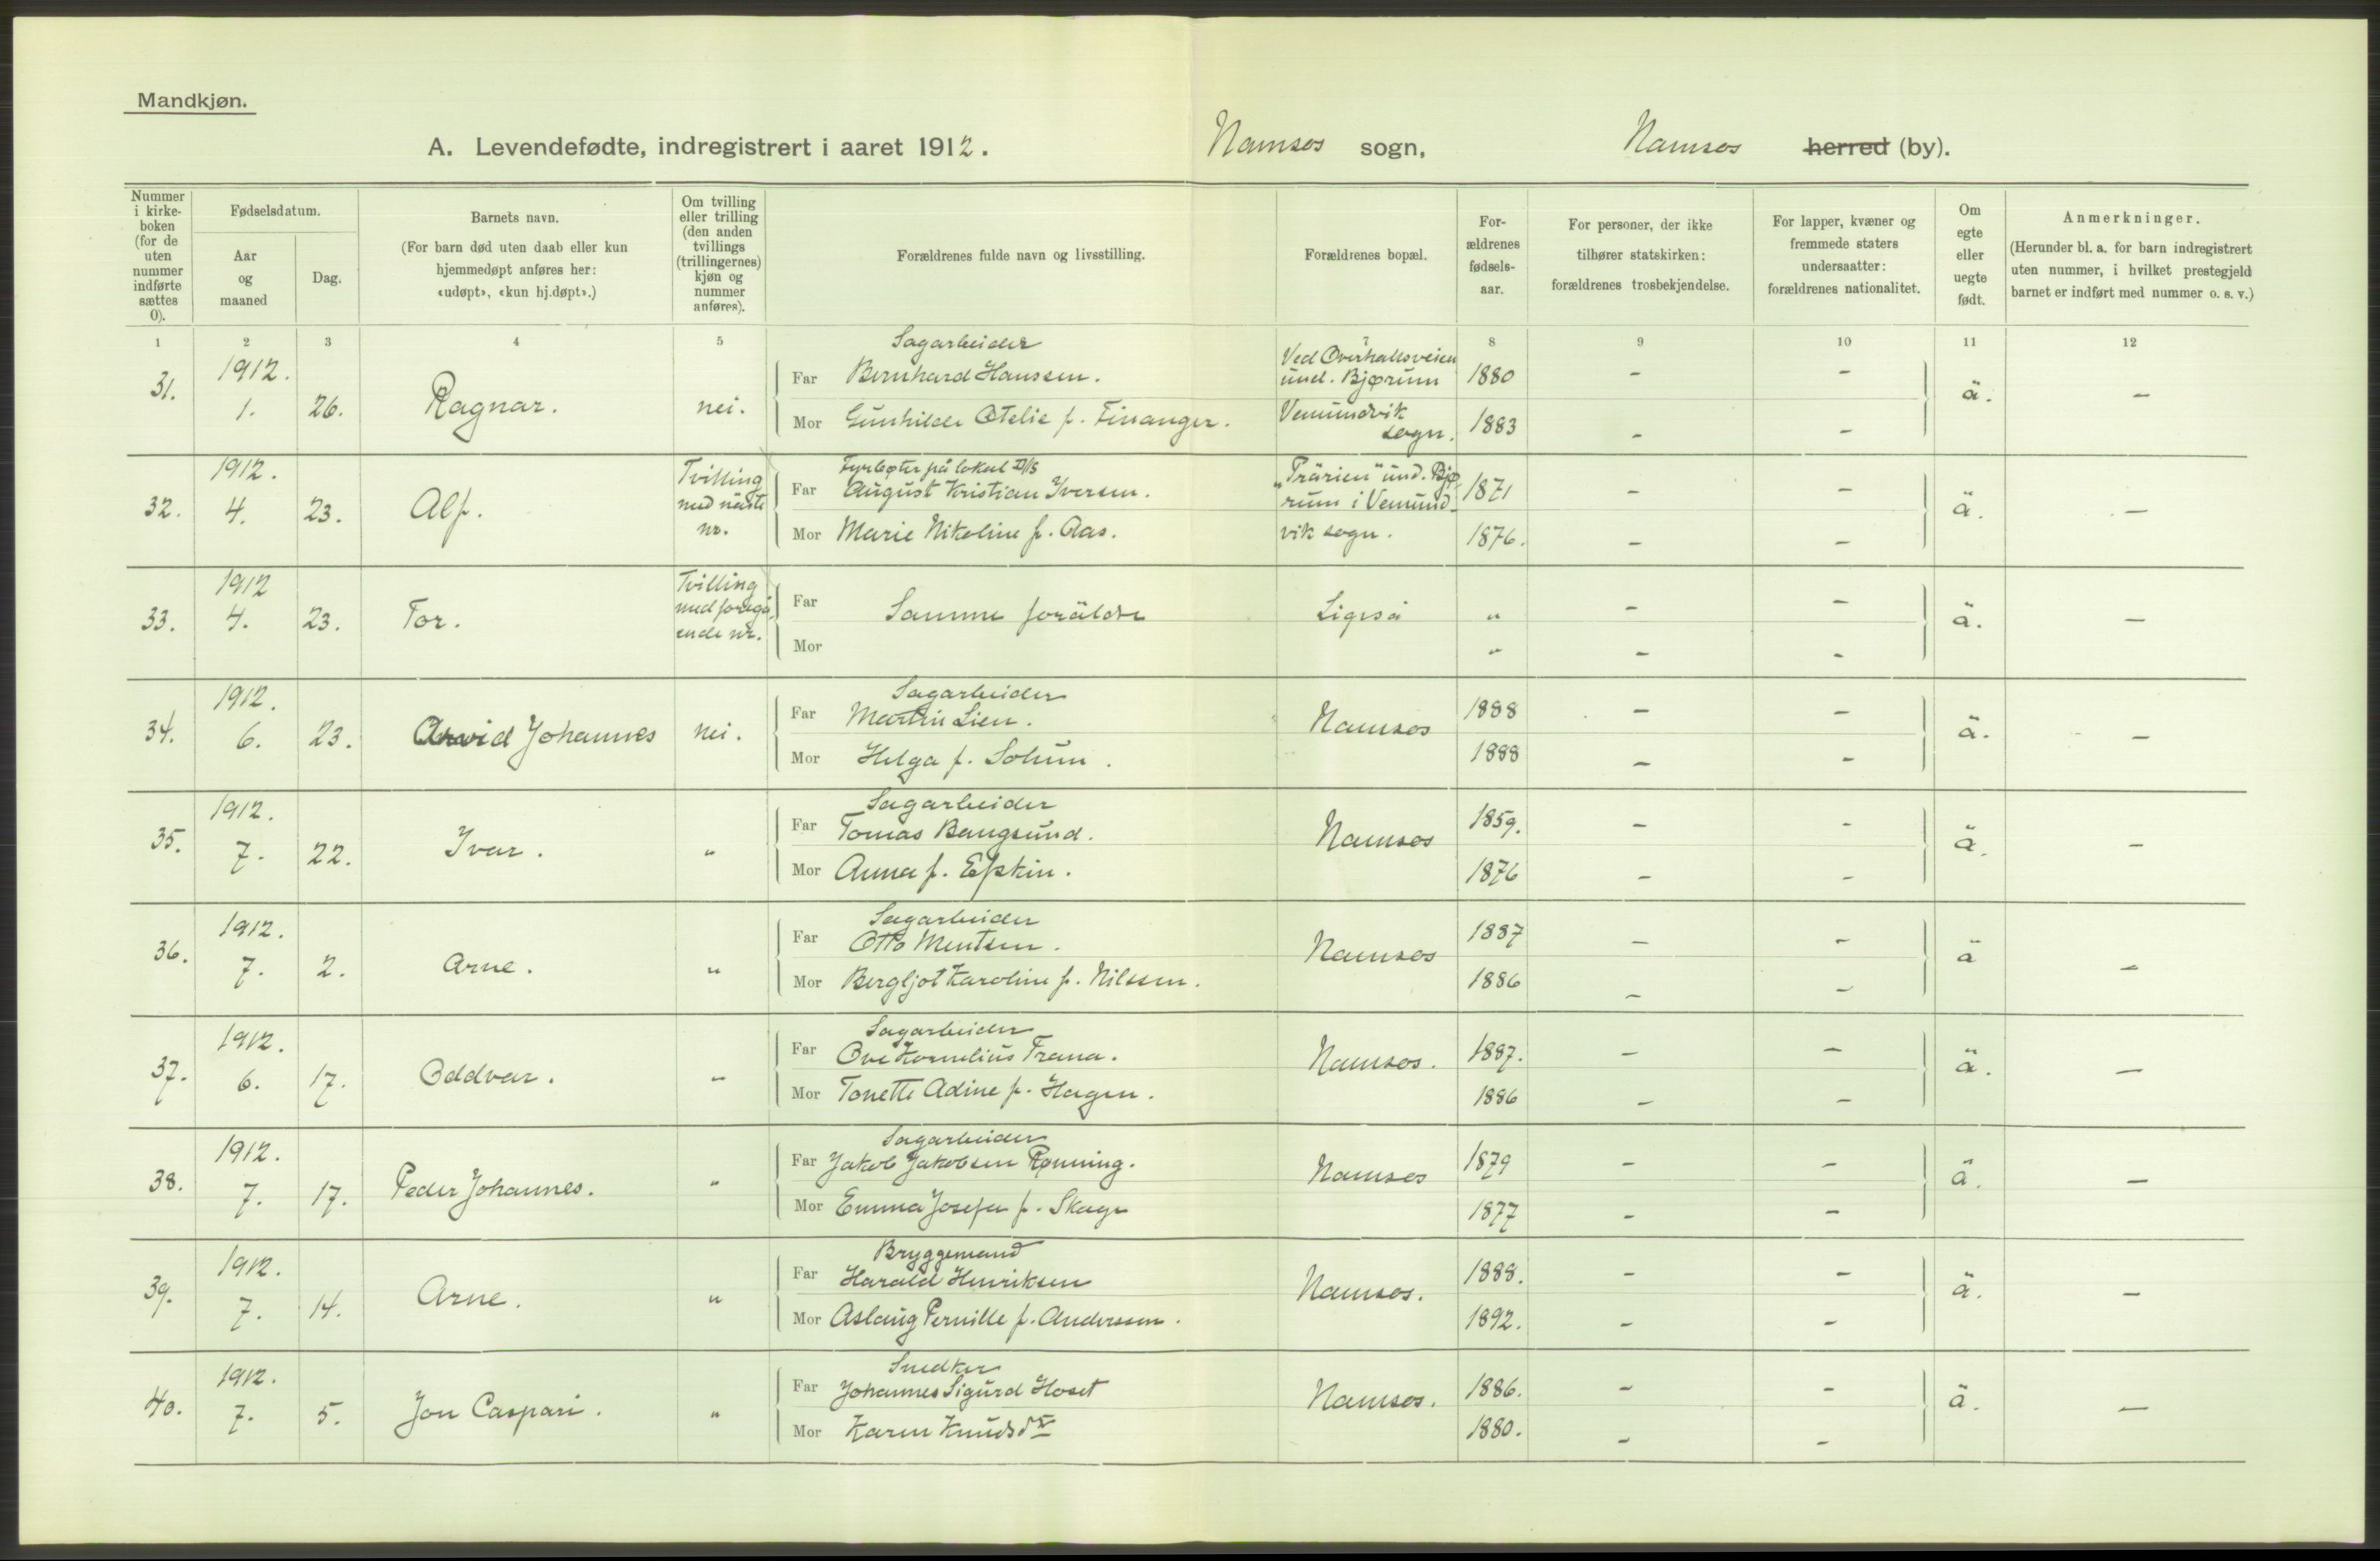 Mandkjøn.
A. Levendefødte, indregistrert i aaret 1912. Namsos sogn, Namsos herred (by).
Nummer i kirke-boken (for de uten nummer indførte sættes 0).
Fødselsdatum.
Aar og maaned
Dag.
Barnets navn.
(For barn død uten daab eller kun hjemmedøpt anføres her: «udøpt», «kun hj.døpt».)
Om tvilling eller trilling (den anden tvillings (trillingernes) kjøn og nummer anføres).
Forældrenes fulde navn og livsstilling.
Forældrenes bopæl.
For-ældrenes fødsels-aar.
For personer, der ikke tilhører statskirken: forældrenes trosbekjendelse.
For lapper, kvæner og fremmede staters undersaatter: forældrenes nationalitet.
Om egte eller uegte født.
Anmerkninger.
(Herunder bl. a. for barn indregistrert uten nummer, i hvilket prestegjeld barnet er indført med nummer o. s. v.)
1 2 3 4 5 7 8 9 10 11 12
31. 1912. 1. 26. Ragnar. nei.
Sagarbeider
Far Bernhard Hanssen. Ved Overhallsveien und. Bjørum 1880 – –
Mor Gunhilda Otelie f. Finanger. Vemundvik sogn. 1883 – – ä. –
32. 1912. 4. 23. Alf. Tvilling med näste nr.
Fyrbøter på lokal D/S
Far August Kristian Iversen. „Prärien" und. Bjø- 1871 – –
rum i Vemund-
Mor Marie Nikoline f. Aas. vik sogn. 1876. – – ä. –
33. 1912 4. 23. Tor. Tvilling med foregå-ende nr.
Far Samme foräldre Ligeså " – –
Mor " – – ä. –
34. 1912. 6. 23. Arvid Johannes nei.
Sagarbeider
Far Martin Lien. Namsos 1888 – –
Mor Helga f. Solum. 1888 – – ä. –
35. 1912. 7. 22. Ivar. "
Sagarbeider
Far Tomas Bangsund. Namsos 1859. – –
Mor Anna f. Efskin. 1876 – – ä. –
36. 1912. 7. 2. Arne. "
Sagarbeider
Far Otto Mentsen. Namsos 1887 – –
Mor Bergljot Karoline f. Nilssen. 1886 – – ä –
37. 1912. 6. 17. Oddvar. "
Sagarbeider
Far Ove Kornelius Frana. Namsos. 1887. – –
Mor Tonette Adine f. Hagen. 1886 – – ä. –
38. 1912. 7. 17. Peder Johannes. "
Sagarbeider
Far Jakob Jakobsen Rønning. Namsos 1879 – –
Mor Emma Josefa f. Skage 1877 – – ä. –
39. 1912. 7. 14. Arne. "
Bryggemand
Far Harald Henriksen Namsos. 1888. – –
Mor Aslaug Pernille f. Anderssen. 1892. – – ä. –
40. 1912. 7. 5. Jon Caspari. "
Snedker
Far Johannes Sigurd Hoset Namsos. 1886. – –
Mor Karen Knudsdr 1880. – – ä. –